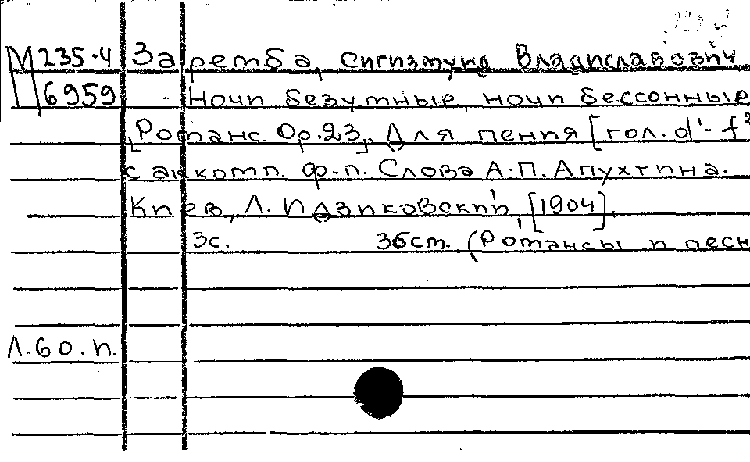 М 235-4 Заремба, Сигизмунд Владиславович
6959 Ночи безумные, ночи бессонные
[Романс. Op. 23]. Для пения [гол. d'-f²
с аккомп. ф-п. Слова А.П. Апухтина.
Киев, Л. Идзиковский, [1904].
3с. 36см. (Романсы и песн
Л.60.п.